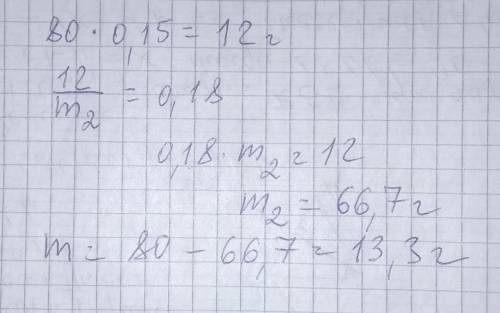 80 · 0,15 = 12 г
12/m₂ = 0,18
0,18 · m₂ = 12
m₂ = 66,7 г
m = 80 - 66,7 = 13,3 г